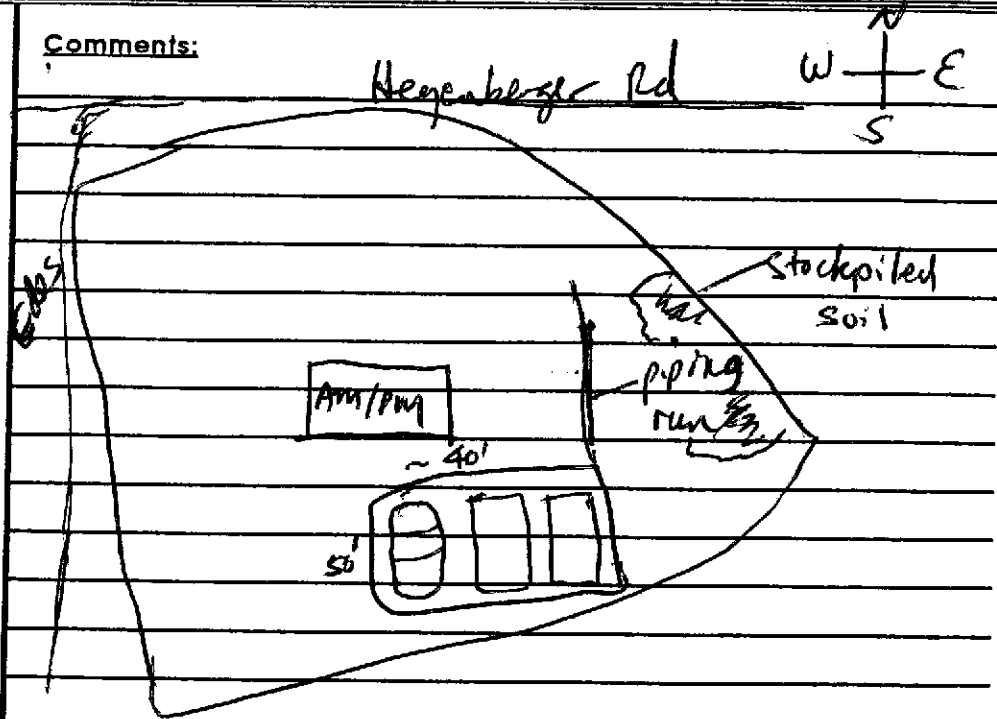 Comments:
N
W E
S
Hegenberger Rd
Stockpiled
Soil
piping
run
Am/pm
~ 40'
50'